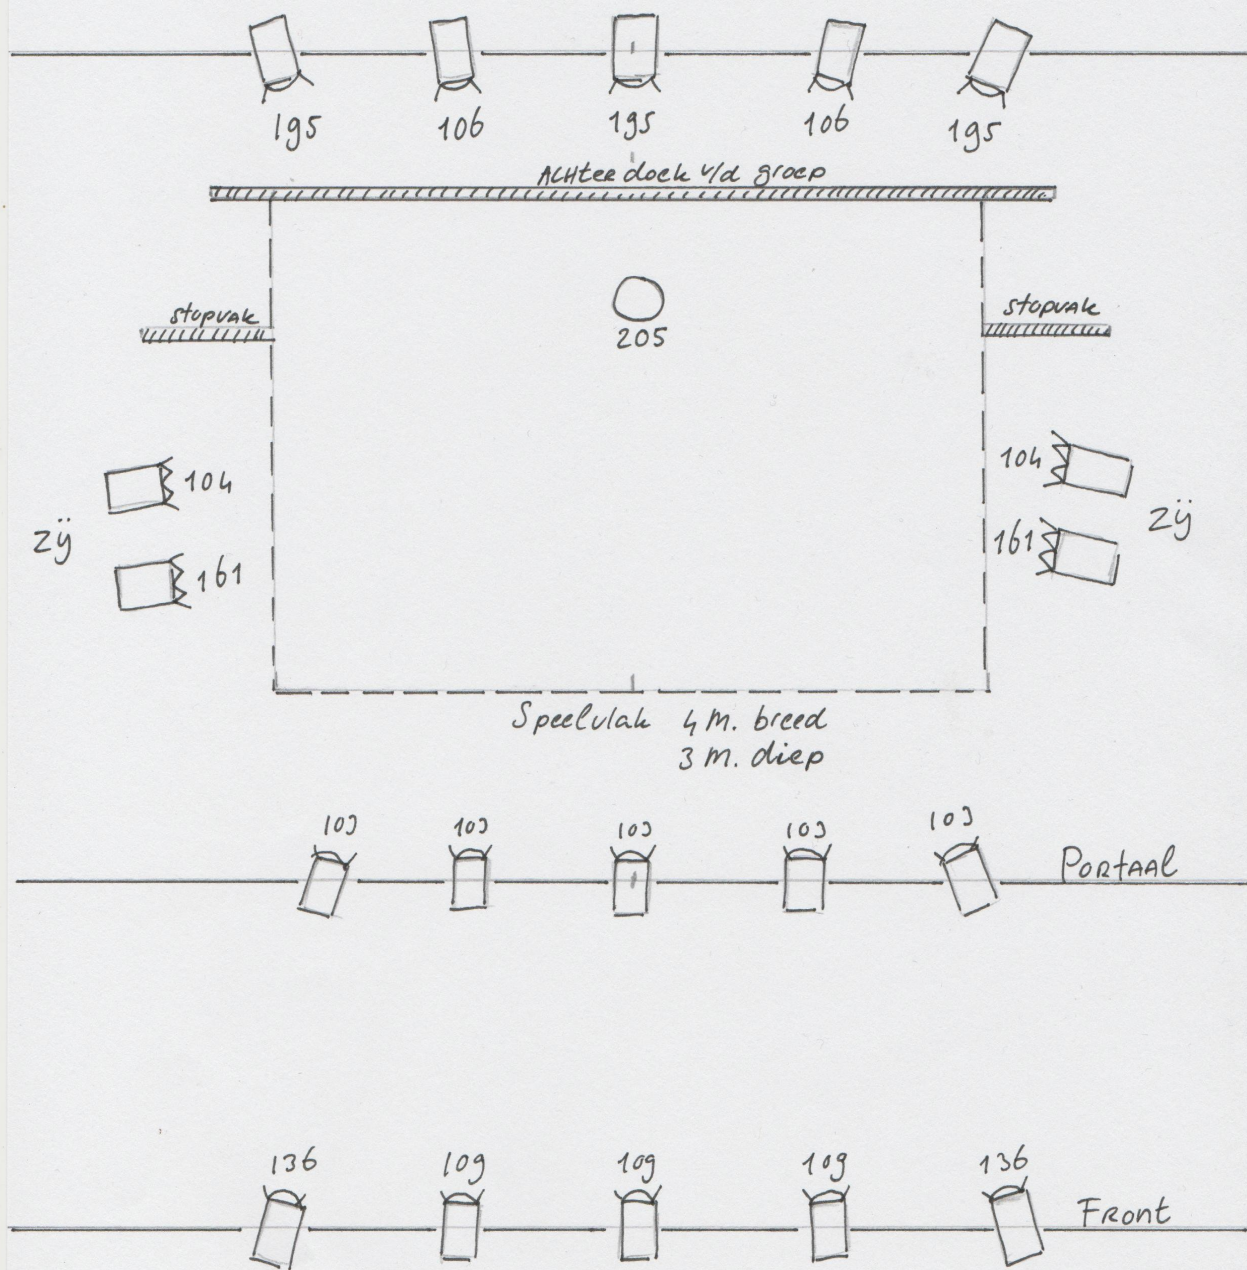 195 106 195 106 195
Achter doek v/d groep
stopvak
stopvak
205
104
104
zij
zij
161
161
Speelvlak 4 M. breed
3 M. diep
103 103 103 103 103
Portaal
136 109 109 109 136
Front